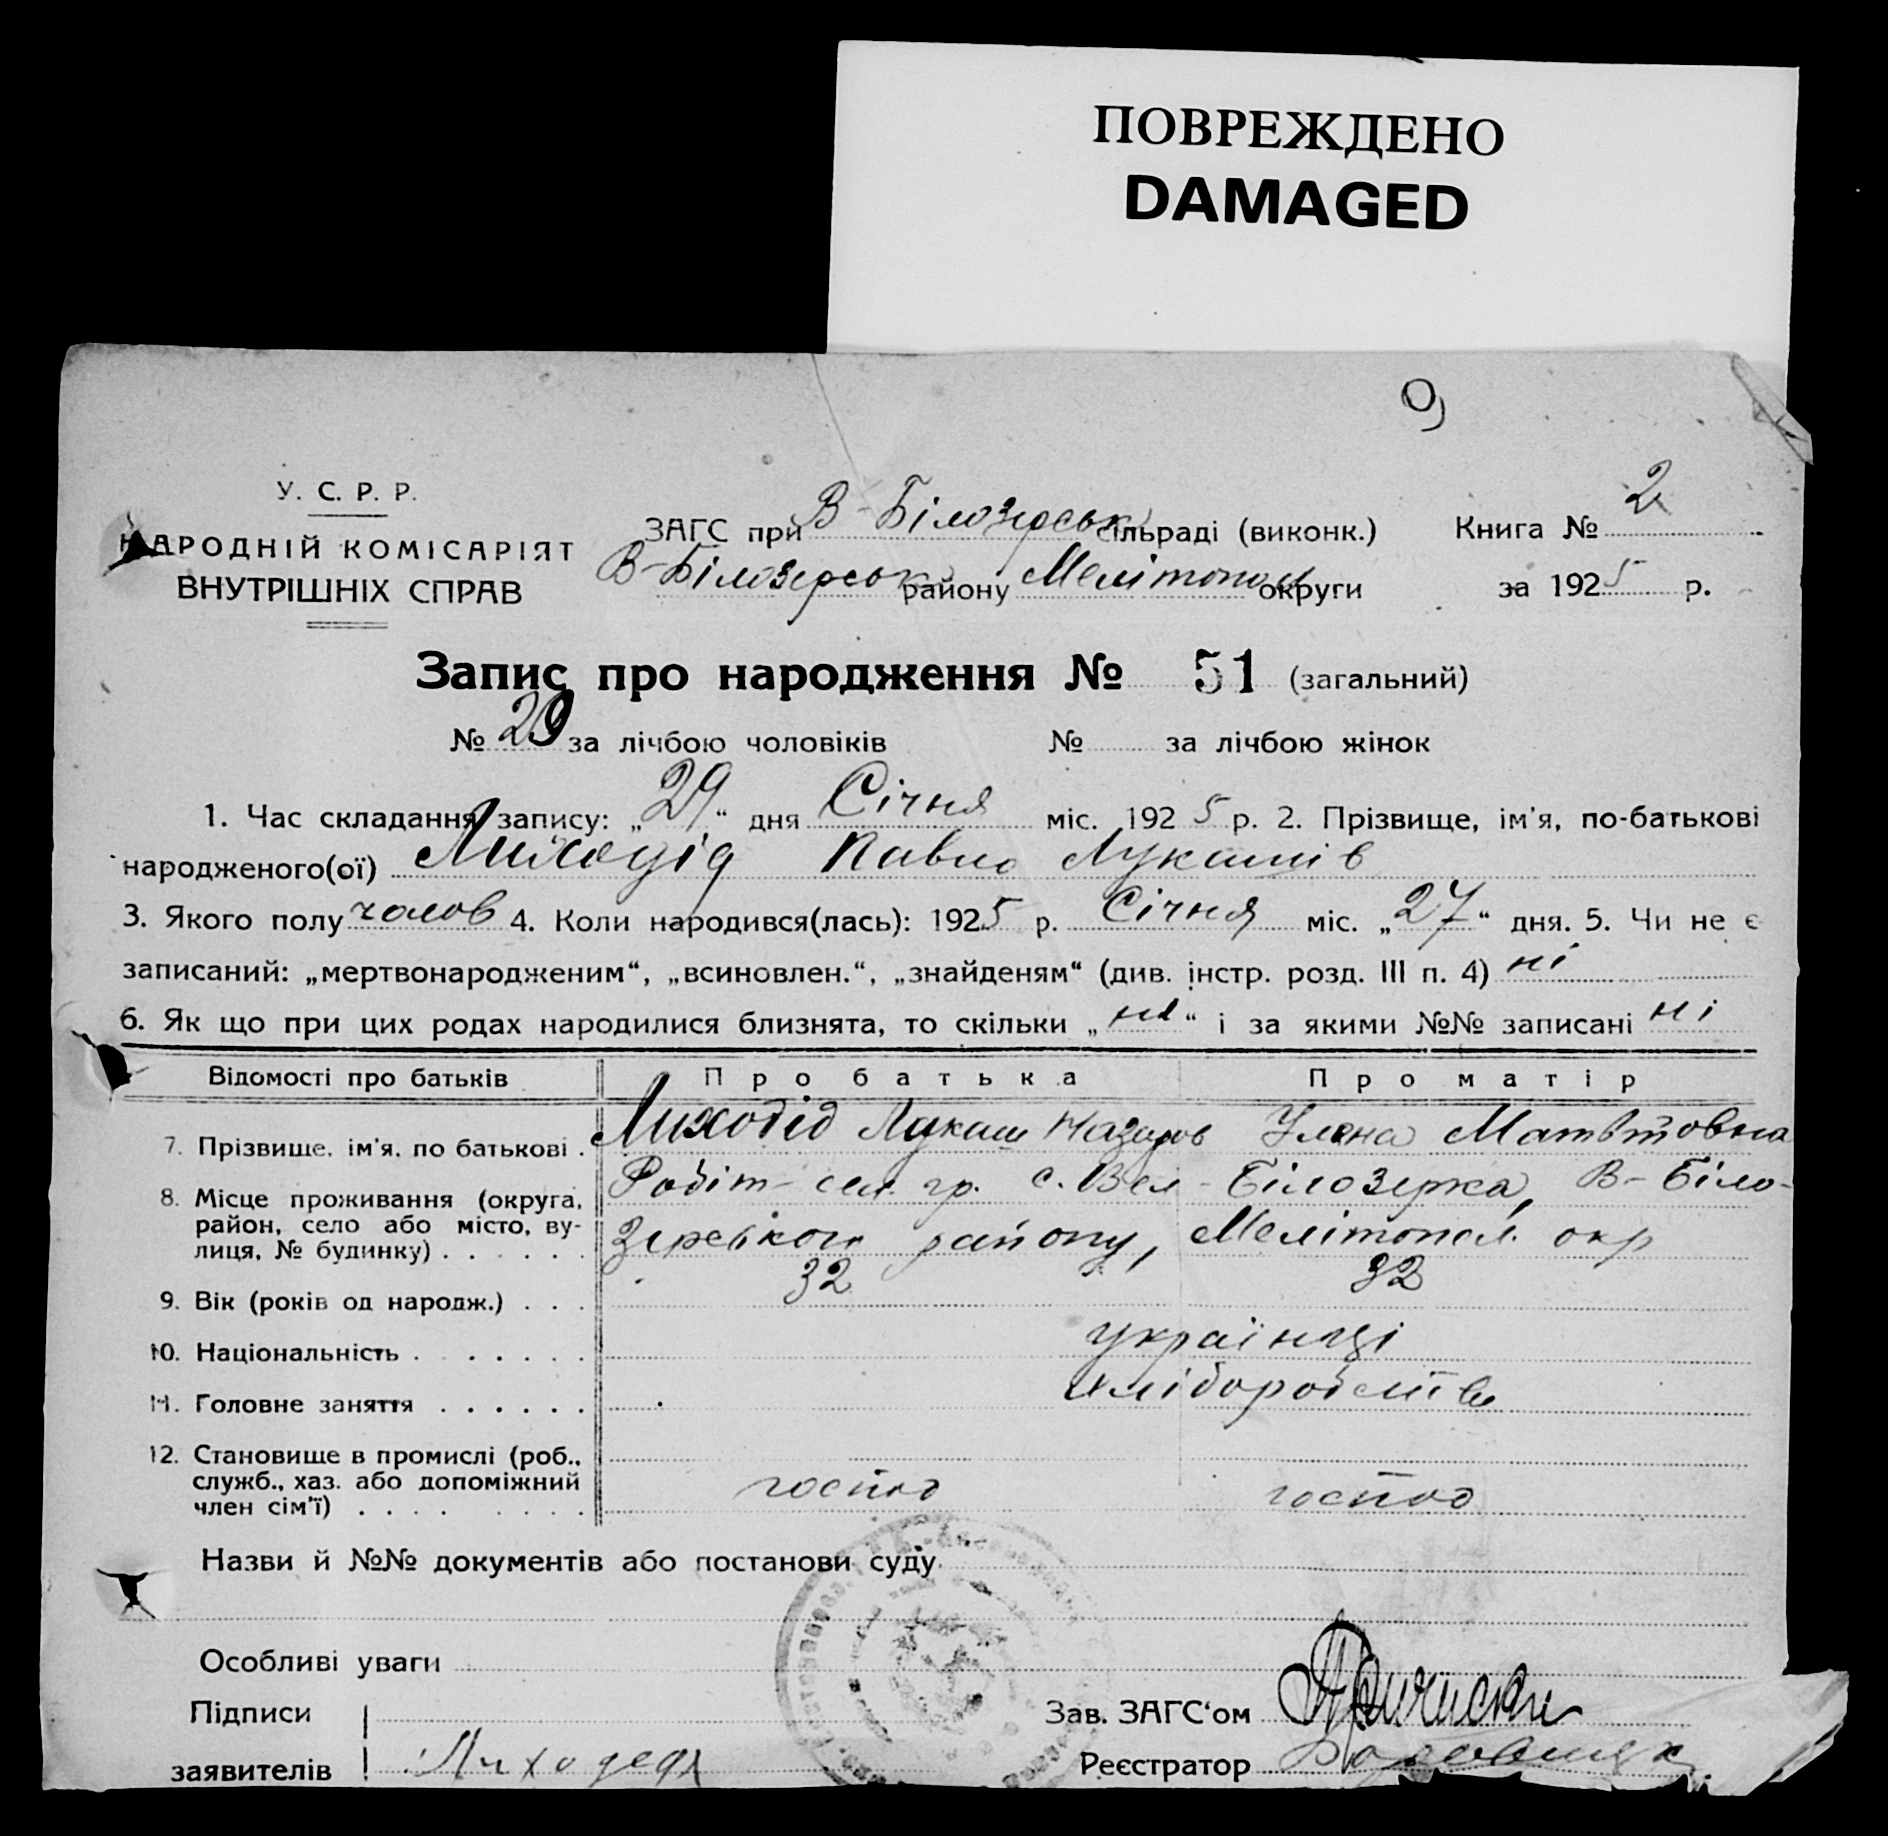 ПОВРЕЖДЕНО
DAMAGED
9
У. С. Р. Р.
НАРОДНІЙ КОМІСАРІЯТ
ВНУТРІШНІХ СПРАВ
ЗАГС при В-Білозерськ сільраді (виконк.) Книга № 2
В-Білозерськ району Мелітопол округи за 1925 р.
Запис про народження № 51 (загальний)
№ 29 за лічбою чоловіків № за лічбою жінок
1. Час складання запису: „29“ дня Січня міс. 1925 р. 2. Прізвище, ім'я, по-батькові
народженого(ої) Лиходід Павло Лукашів
3. Якого полу чолов 4. Коли народився(лась): 1925 р. Січня міс. „27“ дня. 5. Чи не є
записаний: „мертвонародженим“, „всиновлен.“, „знайденям“ (див. інстр. розд. III п. 4) ні
6. Як що при цих родах народилися близнята, то скільки „ні“ і за якими №№ записані ні
Відомості про батьків Про батька Про матір
7. Прізвище, ім'я, по батькові . Лиходід Лукаш Назаров Улена Матвтовна
8. Місце проживання (округа, район, село або місто, вулиця, № будинку) . . . . . . Робіт-сел. гр. с. Вел-Білозерка, В-Біло-
зерського району, Мелітопол. окр
9. Вік (років од народж.) . . . 32 32
10. Національність . . . . . . . українці
11. Головне заняття . . . . . . хліборобств
12. Становище в промислі (роб., служб., хаз. або допоміжний член сім'ї) . . . . . . . . господ господ
Назви й №№ документів або постанови суду
Особливі уваги
Підписи
Зав. ЗАГС'ом
заявителів Лиходед
Реєстратор